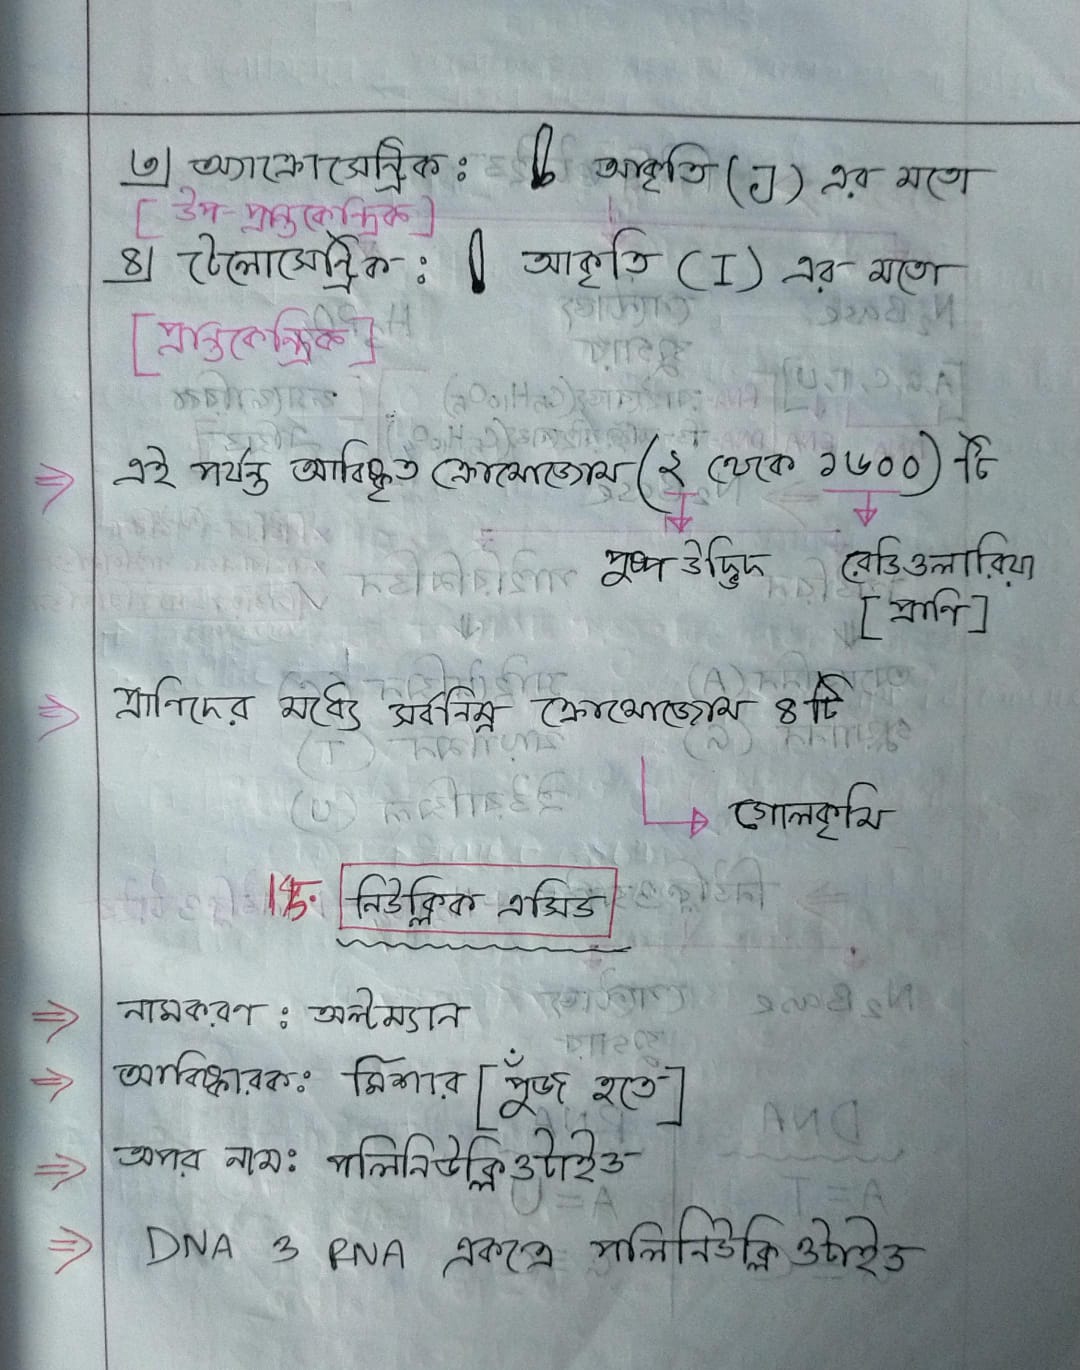 ৩| অ্যাক্রোসেন্ট্রিক: আকৃতি (J) এর মতো
[উপ-প্রান্তকেন্দ্রিক]
৪| টেলোসেন্ট্রিক: আকৃতি (I) এর মতো
[প্রান্তকেন্দ্রিক]
⇒ এই পর্যন্ত আবিষ্কৃত ক্রোমোজোম (২ থেকে ১৬০০) টি
পুষ্প উদ্ভিদ রেডিওলারিয়া
[প্রাণি]
⇒ প্রাণিদের মধ্যে সর্বনিম্ন ক্রোমোজোম ৪টি
গোলকৃমি
নিউক্লিক এসিড
⇒ নামকরণ: অল্টম্যান
⇒ আবিষ্কারক: মিশার [পুঁজ হতে]
⇒ অপর নাম: পলিনিউক্লিওটাইড
⇒ DNA ও RNA একত্রে পলিনিউক্লিওটাইড